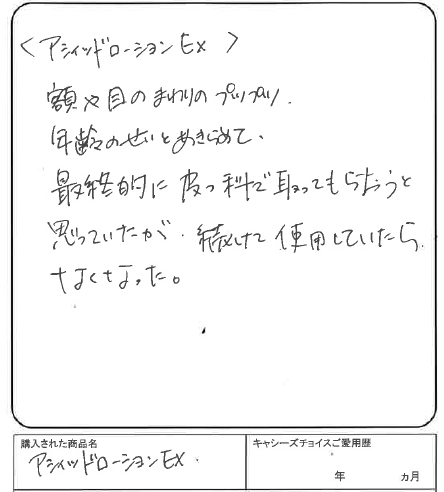 <アシィッドローションEX>
額や目のまわりのプツプツ.
年齢のせいとあきらめて、
最終的に皮フ科で取ってもらおうと
思っていたが、続けて使用していたら
なくなった。
購入された商品名
アシィッドローションEX.
キャシーズチョイスご愛用歴
年 ヵ月